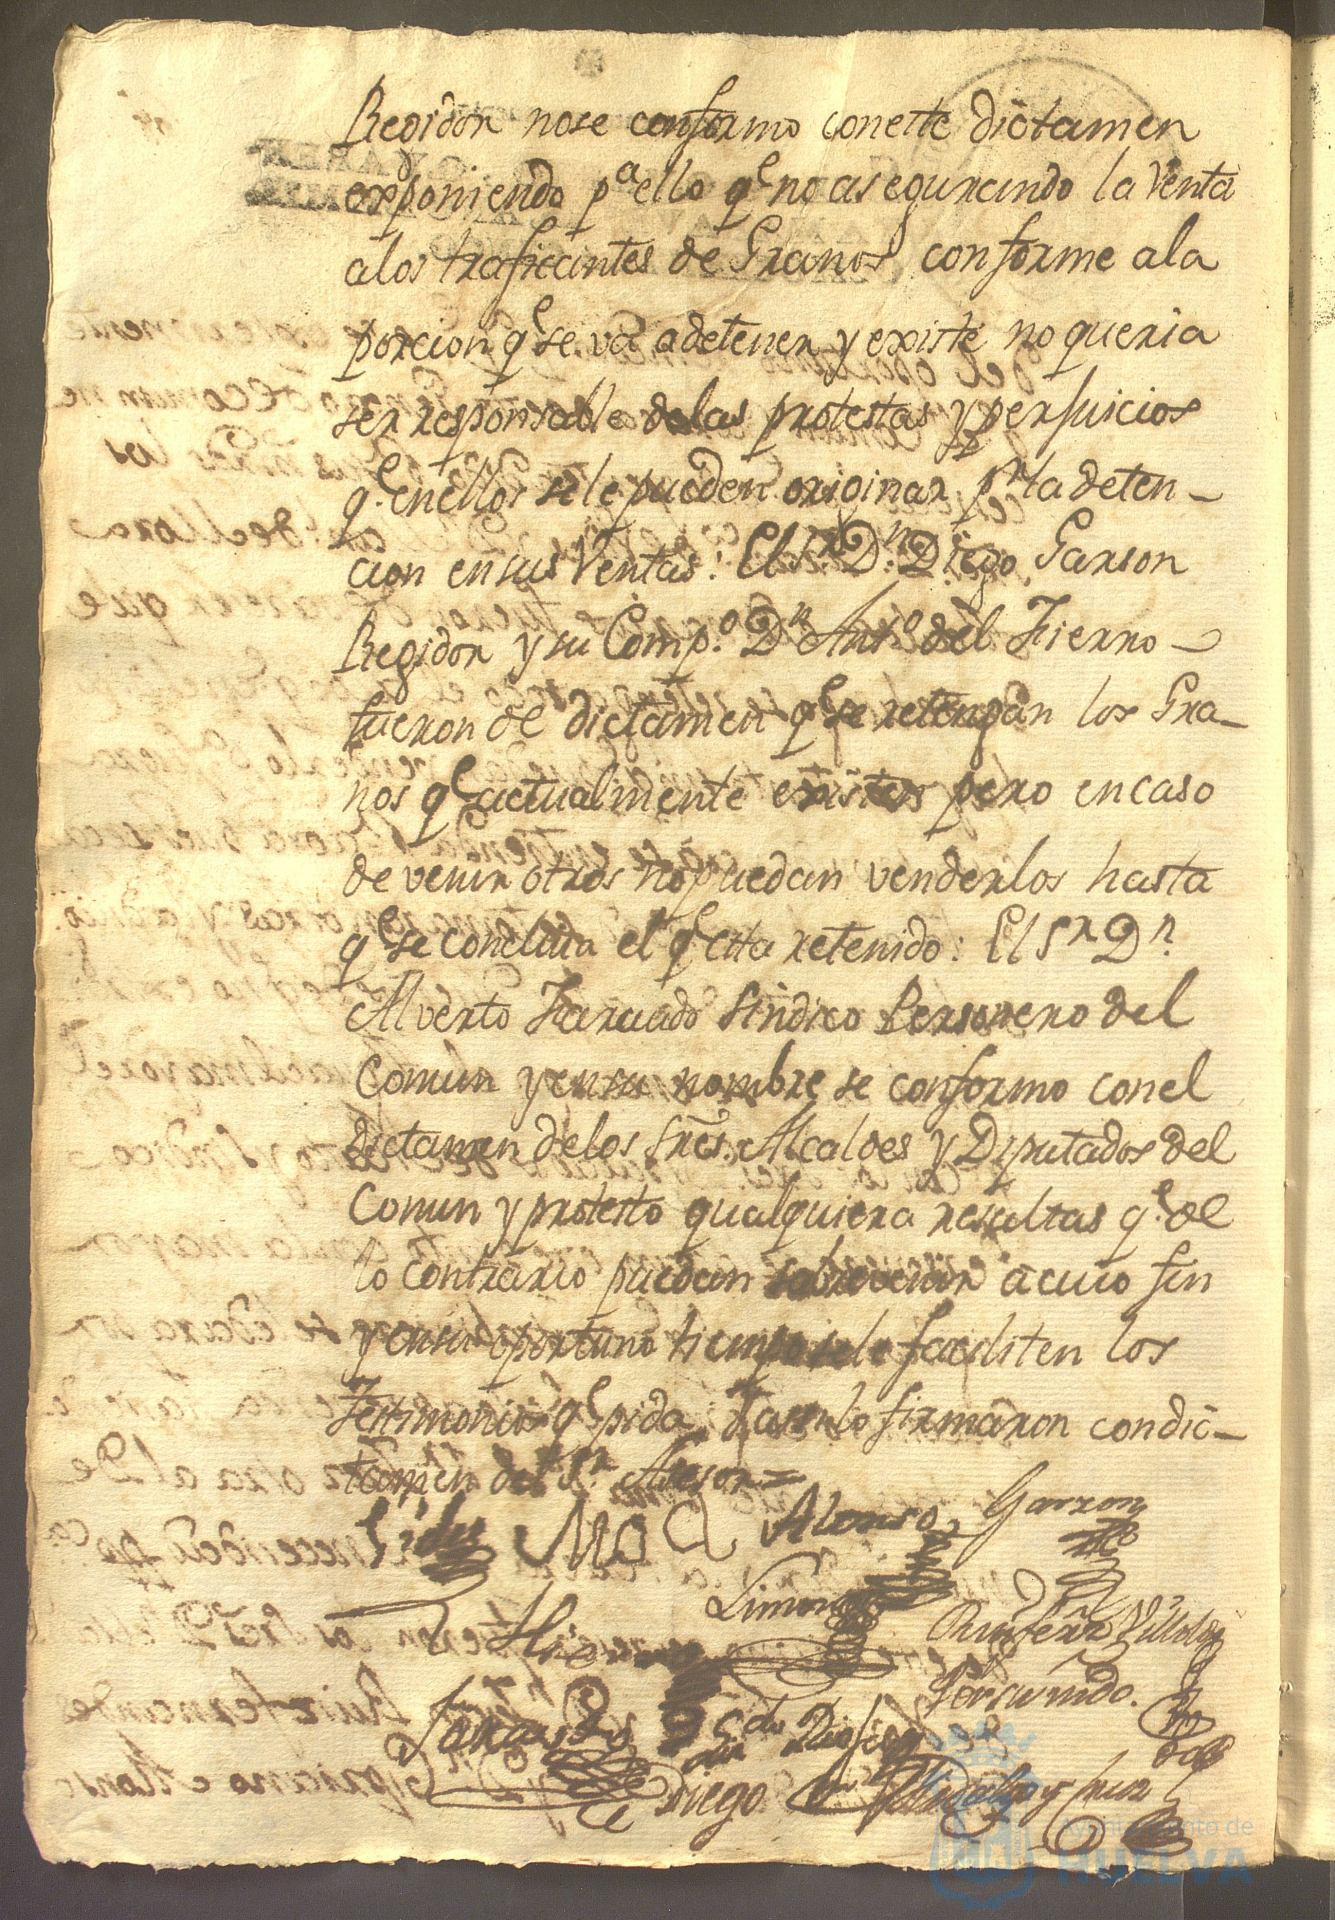 Regidor nose conformo coneste dictamen
exponiendo pa ello qe no asegurando la Venta
alos traficantes de Granos conforme ala
porcion qe se va adetener y existe no queria
ser responsable delas protestas y perjuicios
qe enellos sele pueden originar pr la deten-
cion ensus Ventas: El Sr. Dn. Diego Garson
Regidor y su Compo. Dn Anto del Fierro
fueron de dictamen qe se retengan los Gra-
nos qe actualmente existen pero encaso
de venir otros no puedan venderlos hasta
qe se concluia el qe esta retenido: El Sr Dn.
Alverto Faxuado Sindico Personero del
Comun y en su nombre se conformo conel
dictamen delos Sres. Alcaldes y Diputados del
Comun y protesto qualquiera resultas qe. de
lo contrario puedan sobrevenir a cuio fin
y ensu oportuno tiempo sele faciliten los
Testimonios qe pida: Y assi lo firmaron condic-
tamen del Sr. Asesor=
Alonso Garzon
Limon
Villalo
Diego
Ayuntamiento de
HUELVA